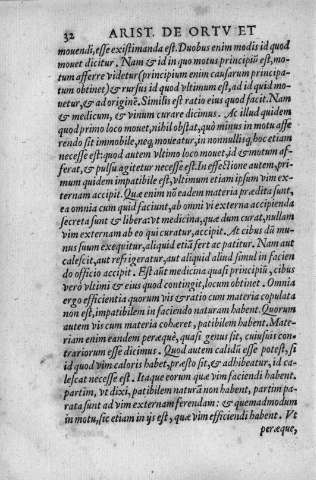 32 ARIST. DE ORTV ET
mouendi, esse existimanda est. Duobus enim modis id quod
mouet dicitur. Nam & id in quo motus principiũ est, mo-
tum afferre videtur (principium enim causarum principa-
tum obtinet) & rursus id quod vltimum est, ad id quid mo-
uetur, & ad originẽ. Similis est ratio eius quod facit. Nam
& medicum, & vinum curare dicimus. At illud quidem
quod primo loco mouet, nihil obstat, quò minus in motu affe
rendo sit immobile, neq; moueatur, in nonnullisq; hoc etiam
necesse est: quod autem vltimo loco mouet, id & motum af-
ferat, & pulsu agitetur necesse est. In effectione autem, pri-
mum quidem impatibile est, vltimum etiam ipsum vim ex-
ternam accipit. Quæ enim nõ eadem materia prædita sunt,
ea omnia cum quid faciunt, ab omni vi externa accipienda
secreta sunt & libera: vt medicina, quæ dum curat, nullam
vim externam ab eo qui curatur, accipit. At cibus dũ mu-
nus suum exequitur, aliquid etiã fert ac patitur. Nam aut
calescit, aut refrigeratur, aut aliquid aliud simul in facien
do officio accipit. Est aũt medicina quasi principiũ, cibus
verò vltimi & eius quod contingit, locum obtinet. Omnia
ergo efficientia quorum vis & ratio cum materia copulata
non est, impatibilem in faciendo naturam habent. Quorum
autem vis cum materia cohæret, patibilem habent. Mate-
riam enim eandem peræquè, quasi genus sit, cuiusuis con-
trariorum esse dicimus. Quod autem calidũ esse potest, si
id quod vim caloris habet, præsto sit, & adhibeatur, id ca-
lescat necesse est. Itaque eorum quæ vim faciendi habent,
partim, vt dixi, patibilem naturã non habent, partim pa-
rata sunt ad vim externam ferendam: & quemadmodum
in motu, sic etiam in ijs est, quæ vim efficiendi habent. Vt
peræque,